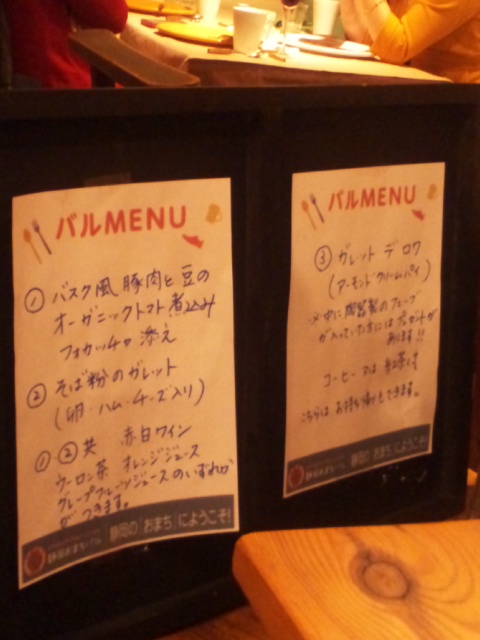 バルMENU
① バスク風 豚肉と豆の
オーガニックトマト煮込み
フォカッチャ 添え
② そば粉のガレット
(卵・ハム・チーズ入り)
①・②共 赤白ワイン
ウーロン茶 オレンジジュース
グレープフルーツジュースのいずれか
がつきます。
静岡おまちバル 静岡の「おまち」にようこそ!
バルMENU
③ ガレット デ ロワ
(アーモンドクリームパイ)
※中に陶器製のフェーブ
が入っていた方にはプレゼントが
あります!!
コーヒー又は紅茶付
こちらはお持ち帰りもできます。
静岡おまちバル 静岡の「おまち」にようこそ!